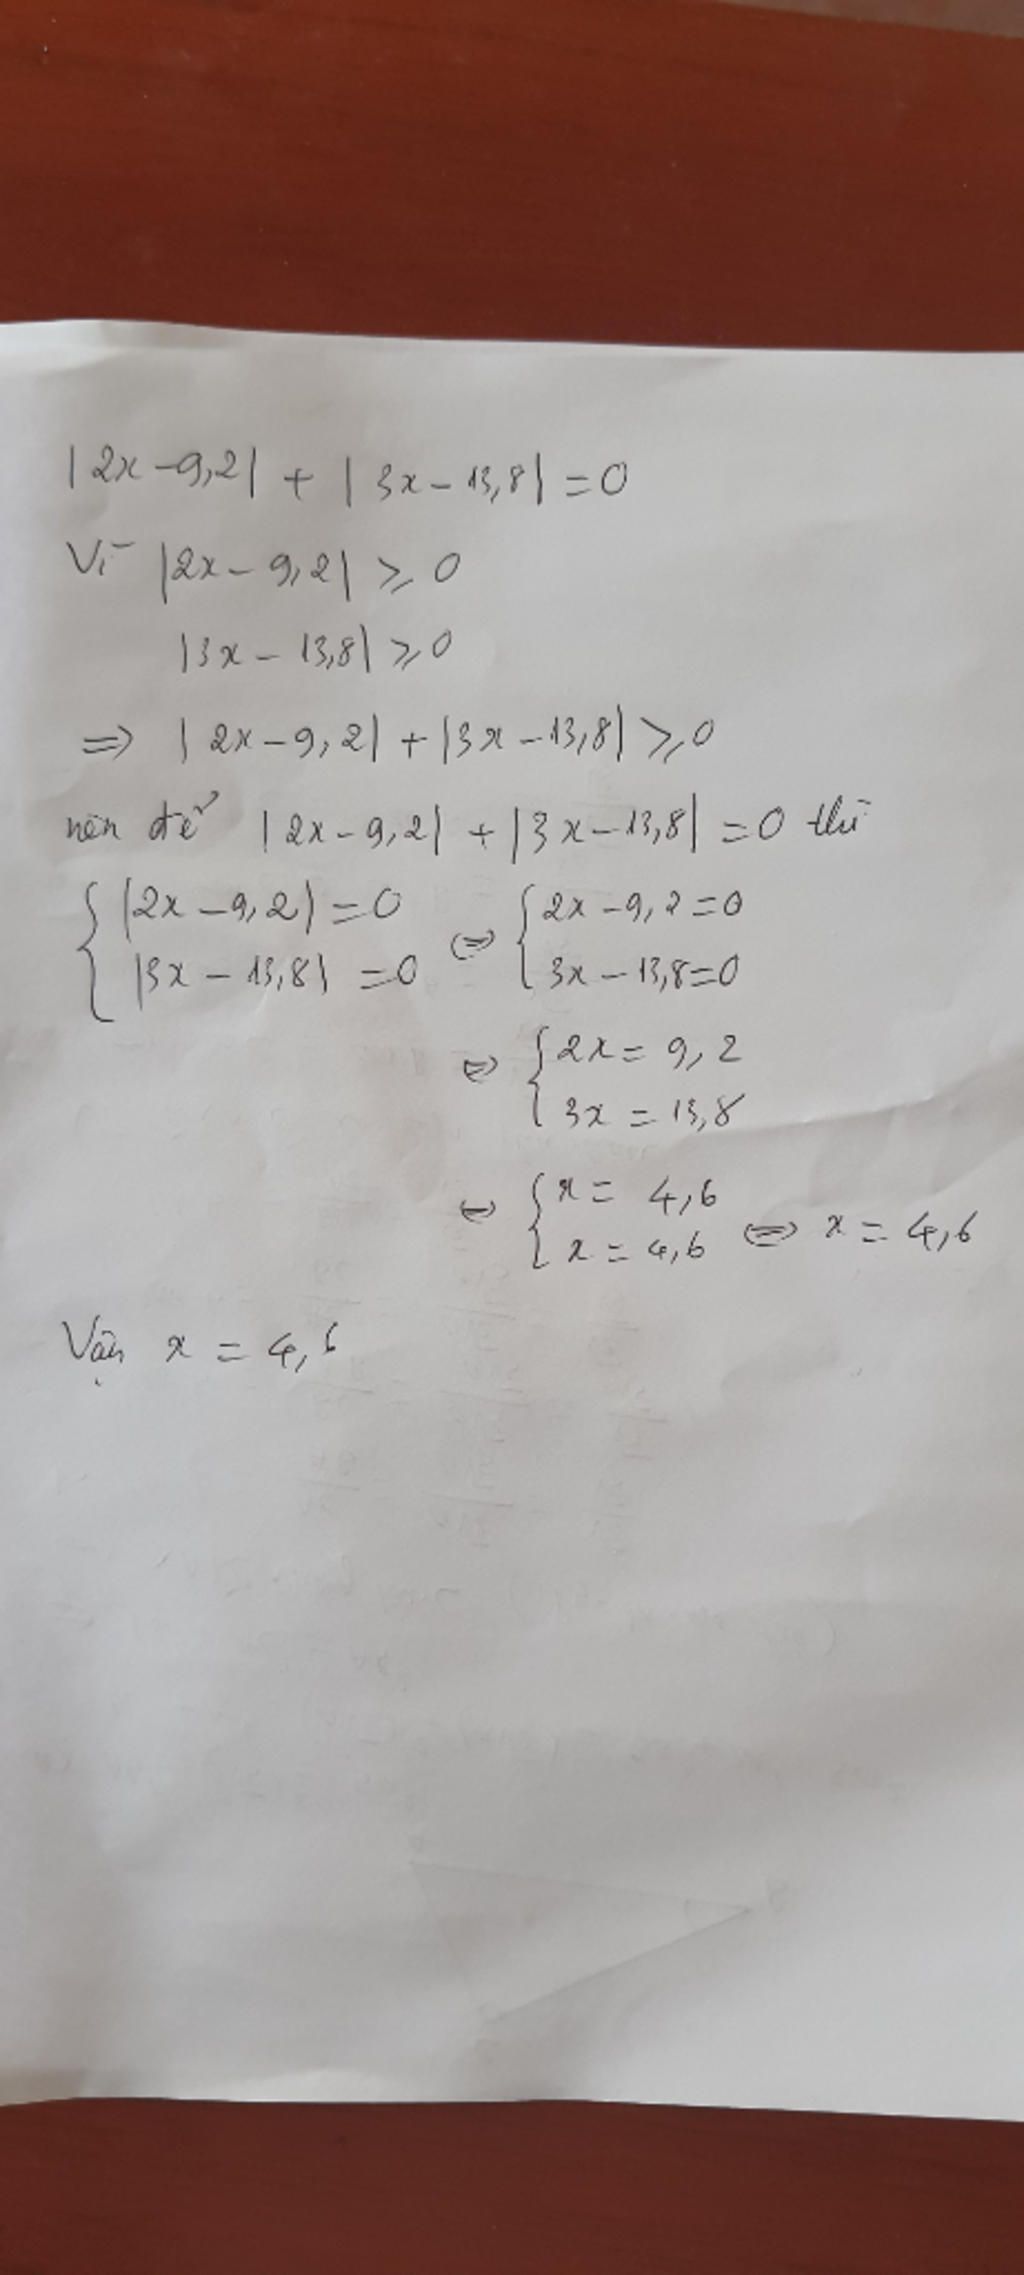 |2x-9,2| + |3x-13,8| = 0
Vì |2x-9,2| ⩾ 0
|3x-13,8| ⩾ 0
=> |2x-9,2| + |3x-13,8| ⩾ 0
nên để |2x-9,2| + |3x-13,8| = 0 thì
{ |2x-9,2| = 0 <=> { 2x-9,2=0
|3x-13,8| = 0 3x-13,8=0
<=> { 2x = 9,2
3x = 13,8
<=> { x = 4,6
x = 4,6 <=> x = 4,6
Vậy x = 4,6